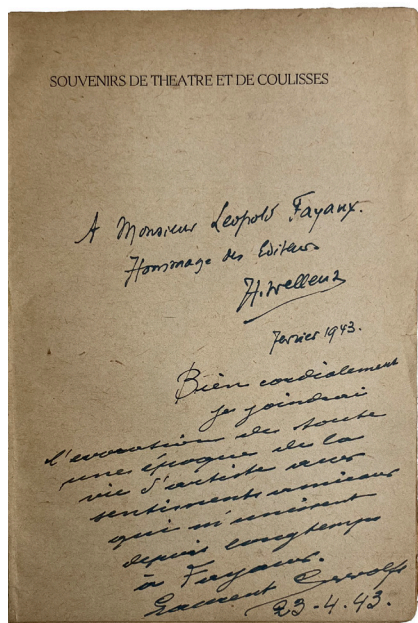 SOUVENIRS DE THEATRE ET DE COULISSES
A Monsieur Leopold Fayaux.
Hommage des Editeurs
H. Wellens
1943.
Bien cordialement
je joindrai
l'evocation de toute
une époque de la
vie d'artiste aux
sentiments amicaux
qui m'unirent
depuis longtemps
à Fayaux.
23-4-43.